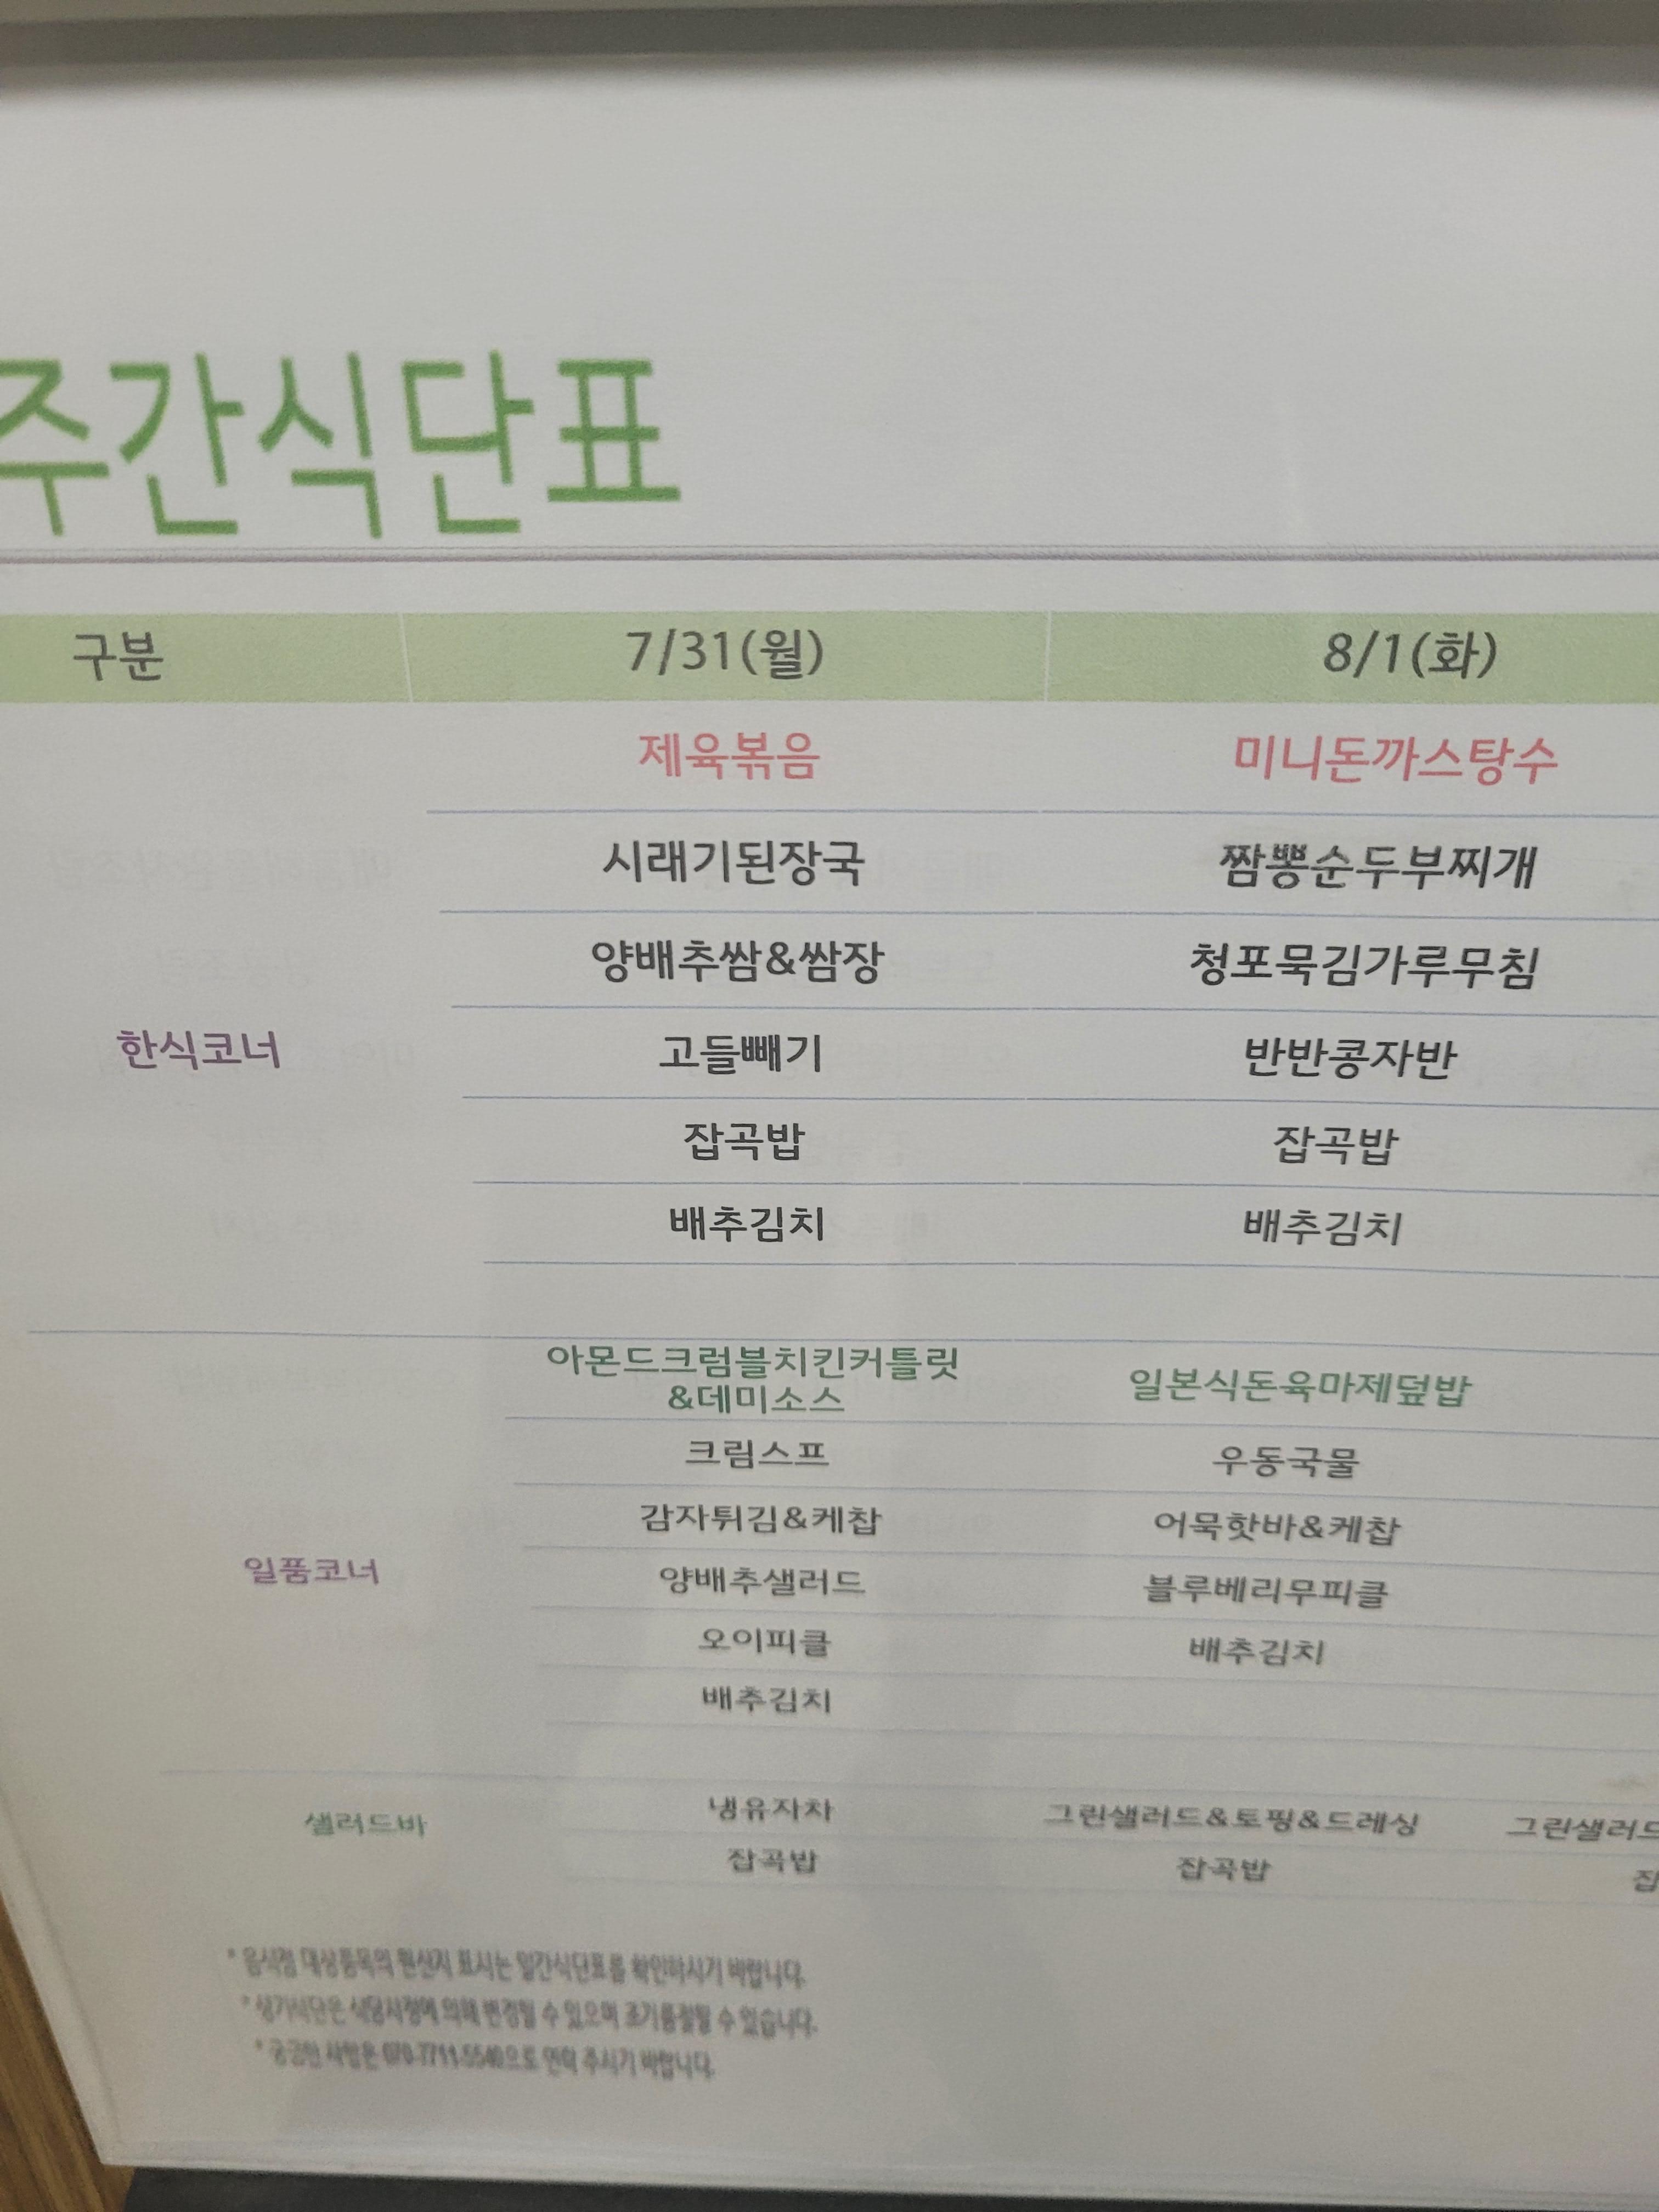 주간식단표
구분 7/31(월) 8/1(화)
제육볶음 미니돈까스탕수
시래기된장국 짬뽕순두부찌개
양배추쌈&쌈장 청포묵김가루무침
한식코너 고들빼기 반반콩자반
잡곡밥 잡곡밥
배추김치 배추김치
아몬드크럼블치킨커틀릿
&데미소스 일본식돈육마제덮밥
크림스프 우동국물
감자튀김&케찹 어묵핫바&케찹
일품코너 양배추샐러드 블루베리무피클
오이피클 배추김치
배추김치
샐러드바 냉유자차 그린샐러드&토핑&드레싱 그린샐러드
잡곡밥 잡곡밥
* 음식점 대상품목의 원산지 표시는 일간식단표를 확인하시기 바랍니다.
* 상기식단은 식당사정에 의해 변경될 수 있으며 조기품절될 수 있습니다.
* 궁금한 사항은 070-7711-5540으로 연락 주시기 바랍니다.